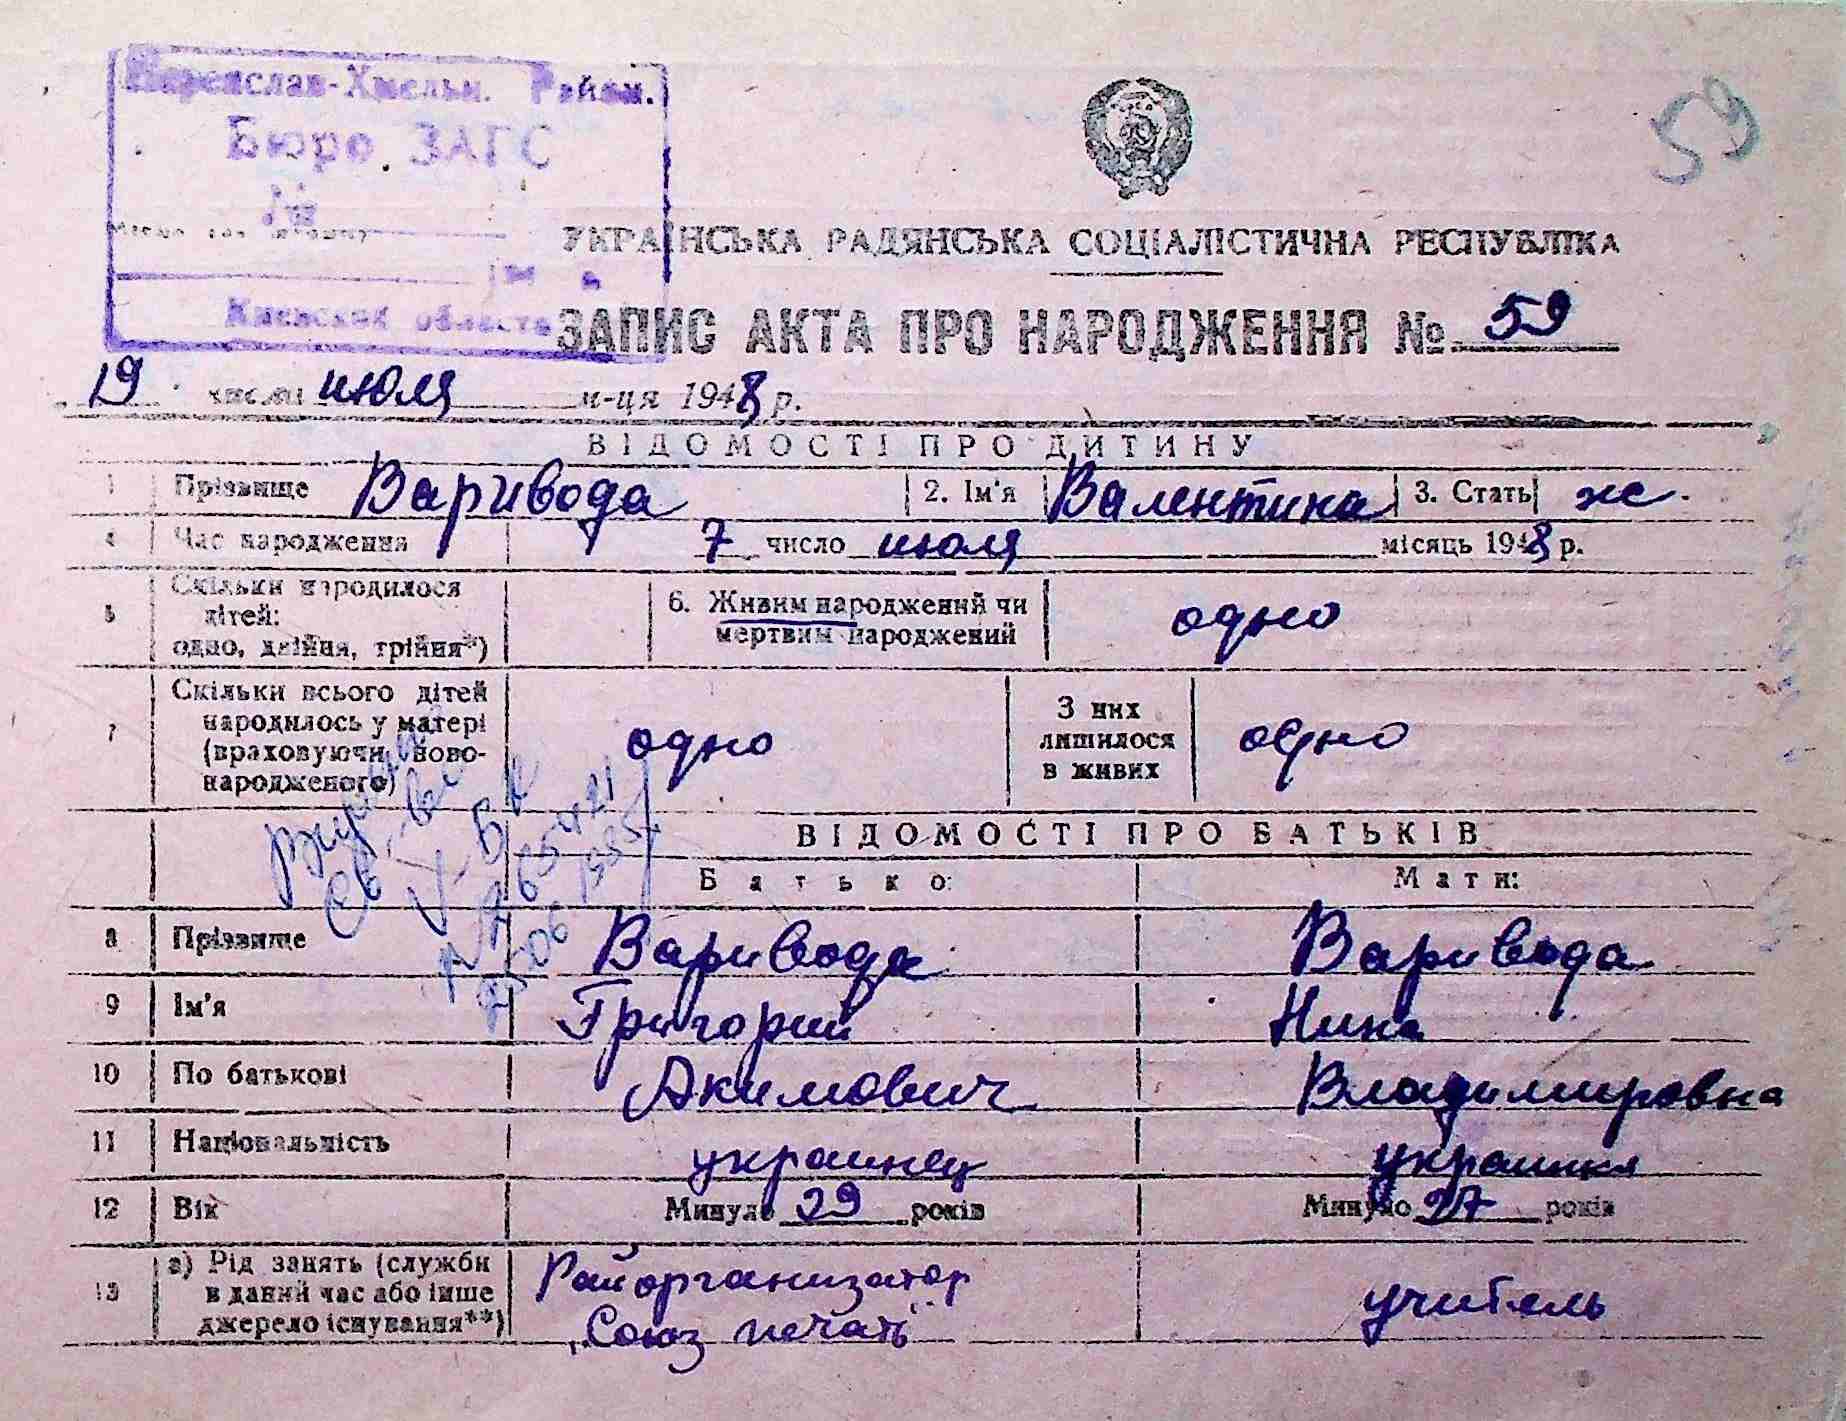 Переяслав-Хмельн. Район.
59
Бюро ЗАГС
№
УКРАЇНСЬКА РАДЯНСЬКА СОЦІАЛІСТИЧНА РЕСПУБЛІКА
Киевская область
ЗАПИС АКТА ПРО НАРОДЖЕННЯ № 59
19 числа июля м-ця 1948 р.
ВІДОМОСТІ ПРО ДИТИНУ
1 Прізвище Варивода 2. Ім'я Валентина 3. Стать ж.
4 Час народження 7 число июля місяць 1948 р.
5 Скільки народилося
дітей:
одно, двійня, трійня*)
6. Живим народжений чи
мертвим народжений
одно
7 Скільки всього дітей
народилось у матері
(враховуючи ново-
народженого)
одно
З них
лишилося
в живих
одно
ВІДОМОСТІ ПРО БАТЬКІВ
Батько: Мати:
8 Прізвище Варивода Варивода
9 Ім'я Григорий Нина
10 По батькові Акимович Владимировна
11 Національність украинец украинка
12 Вік Минуло 29 років Минуло 27 років
13 а) Рід занять (служби
в даний час або інше
джерело існування**)
Райорганизатор
„Союз печать"
учитель